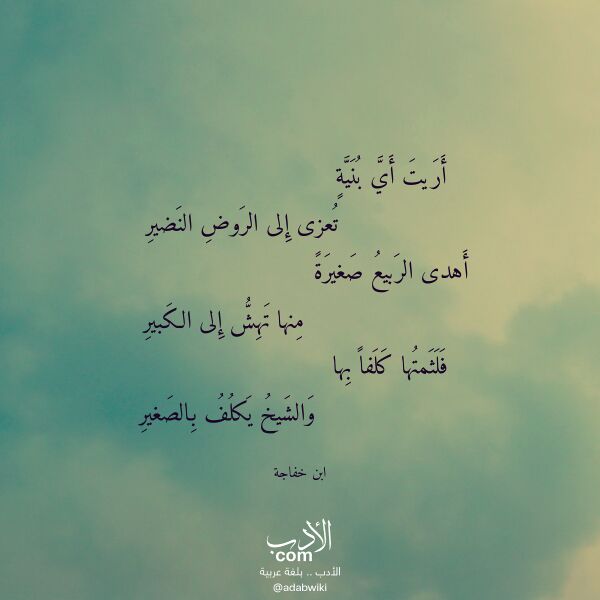 أَرَيتَ أَيَّ بُنَيَّةٍ
تُعزى إِلى الرَوضِ النَضيرِ
أَهدى الرَبيعُ صَغيرَةً
مِنها تَهِشُّ إِلى الكَبيرِ
فَلَثَمتُها كَلَفاً بِها
وَالشَيخُ يَكلُفُ بِالصَغيرِ
ابن خفاجة
الأدب
com
الأدب .. بلغة عربية
@adabwiki